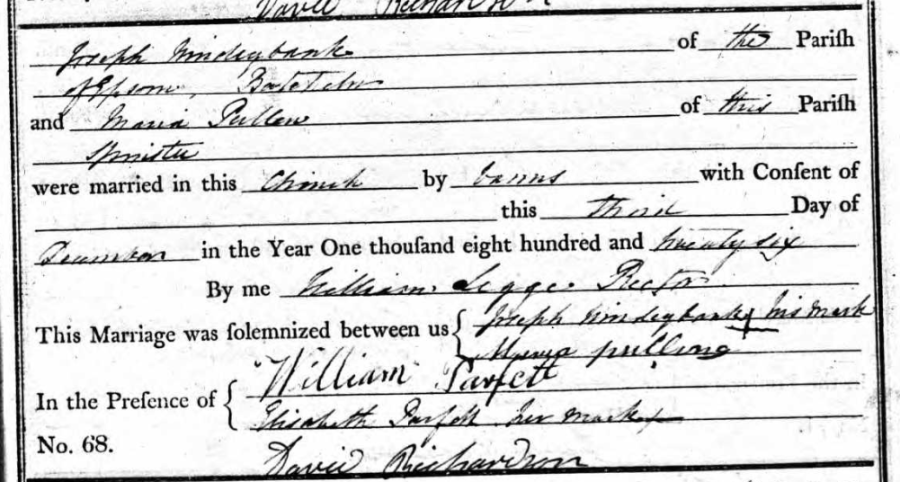 David Richardson
Joseph Windeybank of the Pariſh
of Epsom, Batchelor
and Maria Pullen of this Pariſh
Spinster
were married in this Church by banns with Conſent of
this third Day of
December in the Year One thouſand eight hundred and twenty six
By me William Legge Rector
This Marriage was ſolemnized between us { Joseph Windeybank X his mark
Maria pulling
In the Preſence of { William Parfett
Elisabeth Parfett her mark X
No. 68.
David Richardson